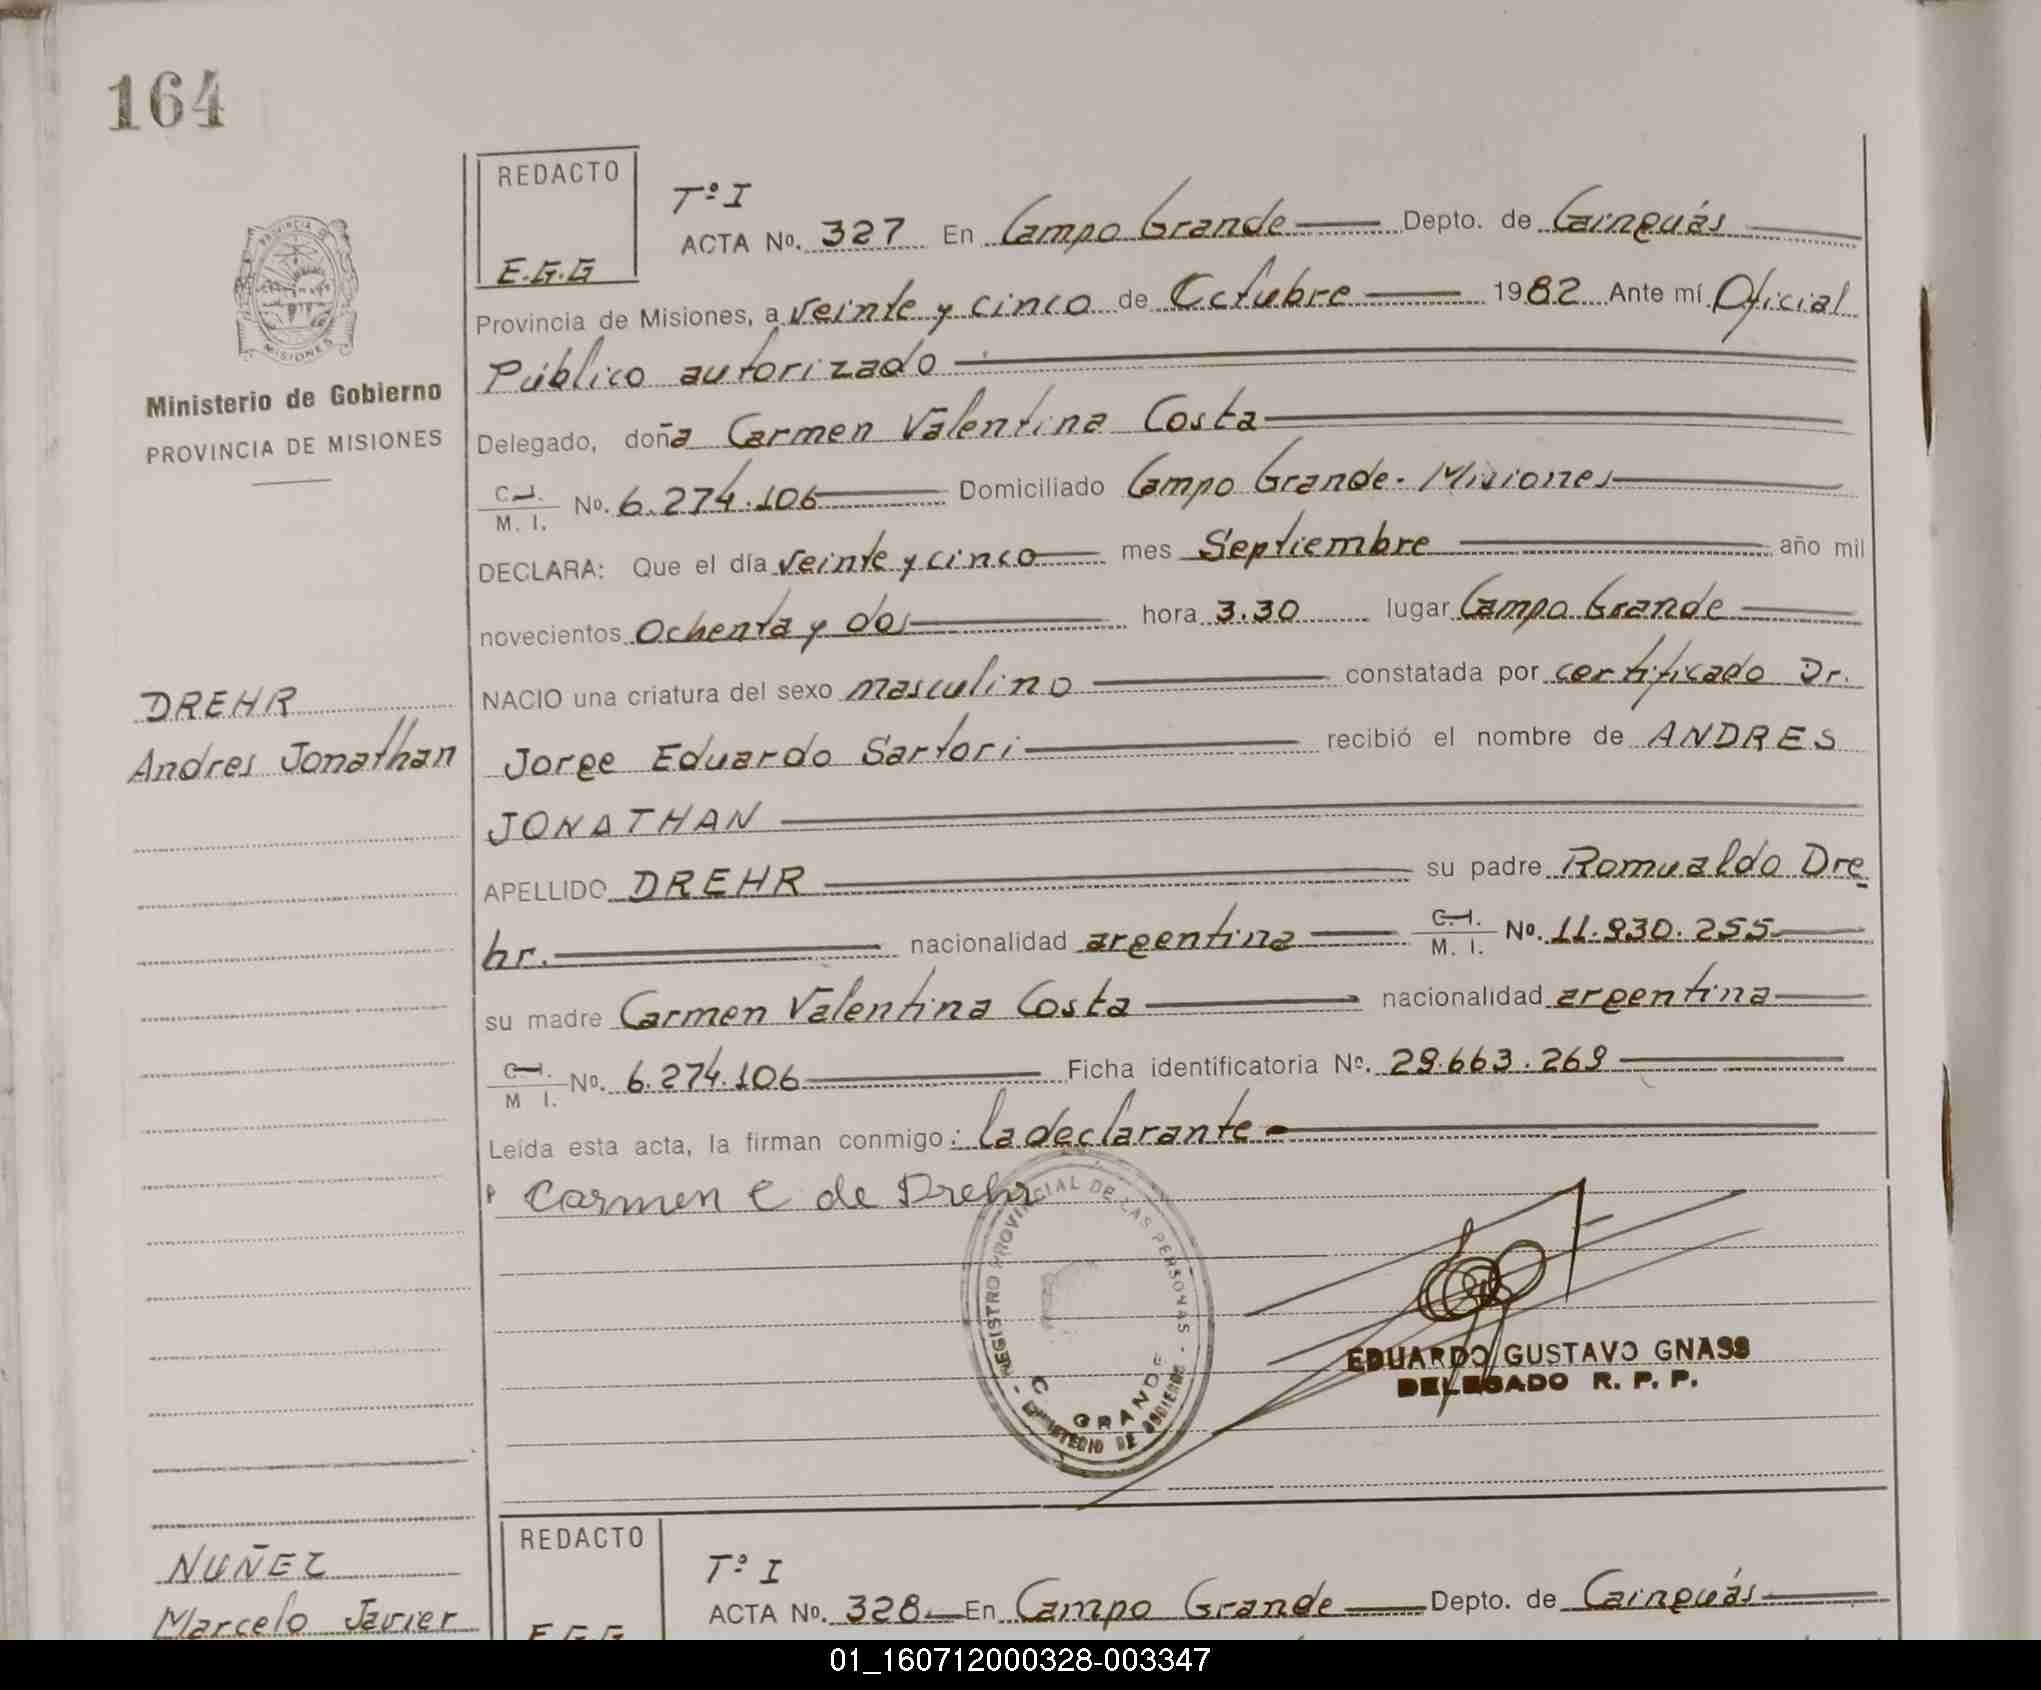 164
REDACTO
E.G.G
Tº I
ACTA Nº. 327 En Campo Grande Depto. de Cainguás
Provincia de Misiones, a veinte y cinco de Octubre 1982 Ante mí Oficial
Público autorizado
Delegado, doña Carmen Valentina Costa
C.I.
M. I. Nº. 6.274.106 Domiciliado Campo Grande - Misiones
DECLARA: Que el día veinte y cinco mes Septiembre año mil
novecientos Ochenta y dos hora 3.30 lugar Campo Grande
NACIO una criatura del sexo masculino constatada por certificado Dr.
Jorge Eduardo Sartori recibió el nombre de ANDRES
JONATHAN
APELLIDO DREHR su padre Romualdo Dre
hr. nacionalidad argentina C.I. M. I. Nº. 11.930.255
su madre Carmen Valentina Costa nacionalidad argentina
C.I. M I. Nº. 6.274.106 Ficha identificatoria Nº. 29.663.269
Leída esta acta, la firman conmigo: la declarante
Carmen C de Drehr
REGISTRO PROVINCIAL DE LAS PERSONAS - MINISTERIO DE GOBIERNO -
C. GRANDE
EDUARDO GUSTAVO GNASS
DELEGADO R. P. P.
PROVINCIA DE
MISIONES
Ministerio de Gobierno
PROVINCIA DE MISIONES
DREHR
Andres Jonathan
NUÑEZ
Marcelo Javier
REDACTO
E.G.G
Tº I
ACTA Nº. 328 En Campo Grande Depto. de Cainguás
01_160712000328-003347